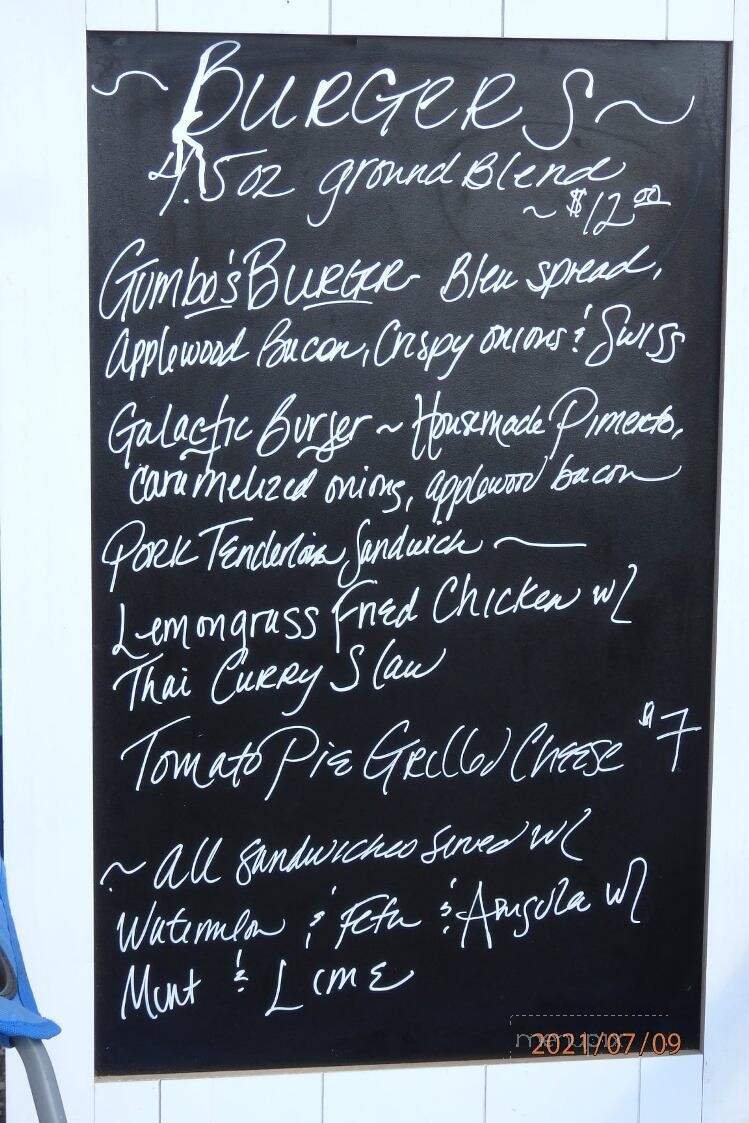 ~ BURGERS ~
4.5oz ground Blend
~ $12.00
Gumbo's BURGER - Bleu spread,
Applewood Bacon, Crispy onions & Swiss
Galactic Burger ~ Housemade Pimento,
caramelized onions, applewood bacon
Pork Tenderloin Sandwich ~
Lemongrass Fried Chicken w/
Thai Curry Slaw
Tomato Pie Grilled Cheese $7
~ all sandwiches served w/
Watermelon & Feta & Arugula w/
Mint & Lime
menupix
2021/07/09